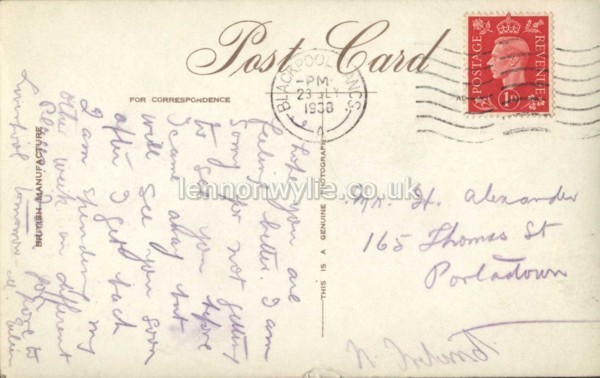 Post Card
FOR CORRESPONDENCE
BRITISH MANUFACTURE
THIS IS A GENUINE PHOTOGRAPH
BLACKPOOL LANCS.
PM
23 JLY
1938
POSTAGE
REVENUE
1D
I hope you are
feeling better. I am
sorry for not getting
to see you before
I came away but
will see you soon
after I get back
I am spending my
other week on different
love to
Liverpool tomorrow
Mr. H. Alexander
165 Thomas St
Portadown
N. Ireland
lennonwylie.co.uk